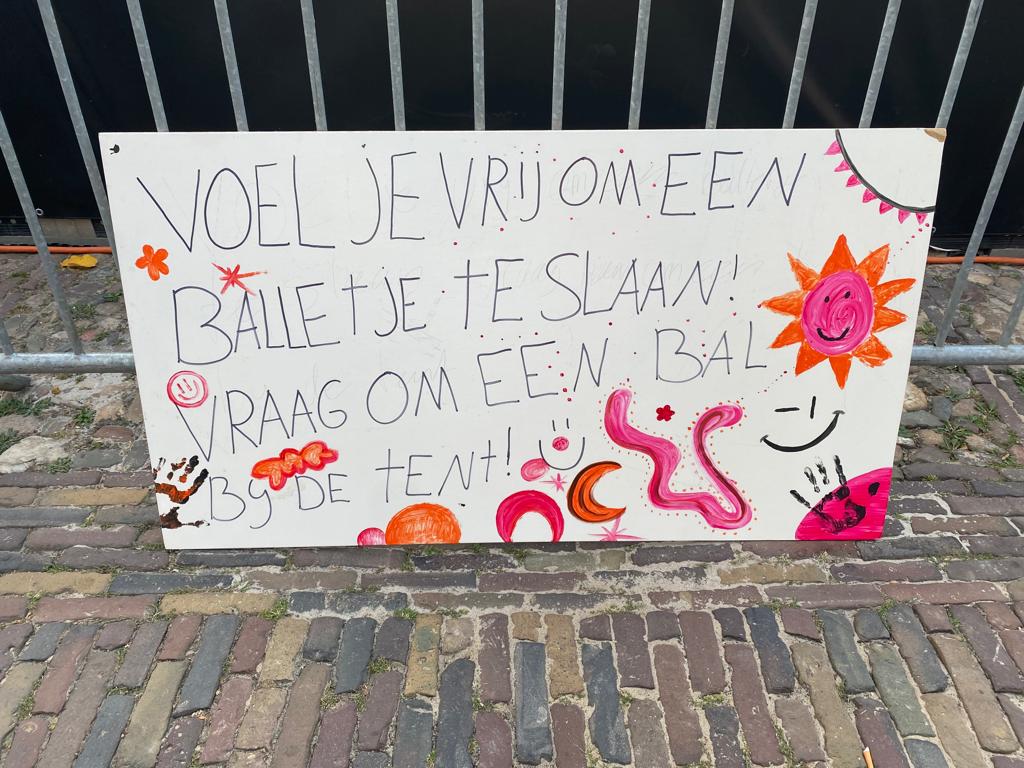 VOEL JE VRIJ OM EEN
BALLETJE TE SLAAN!
VRAAG OM EEN BAL
By DE tENt!